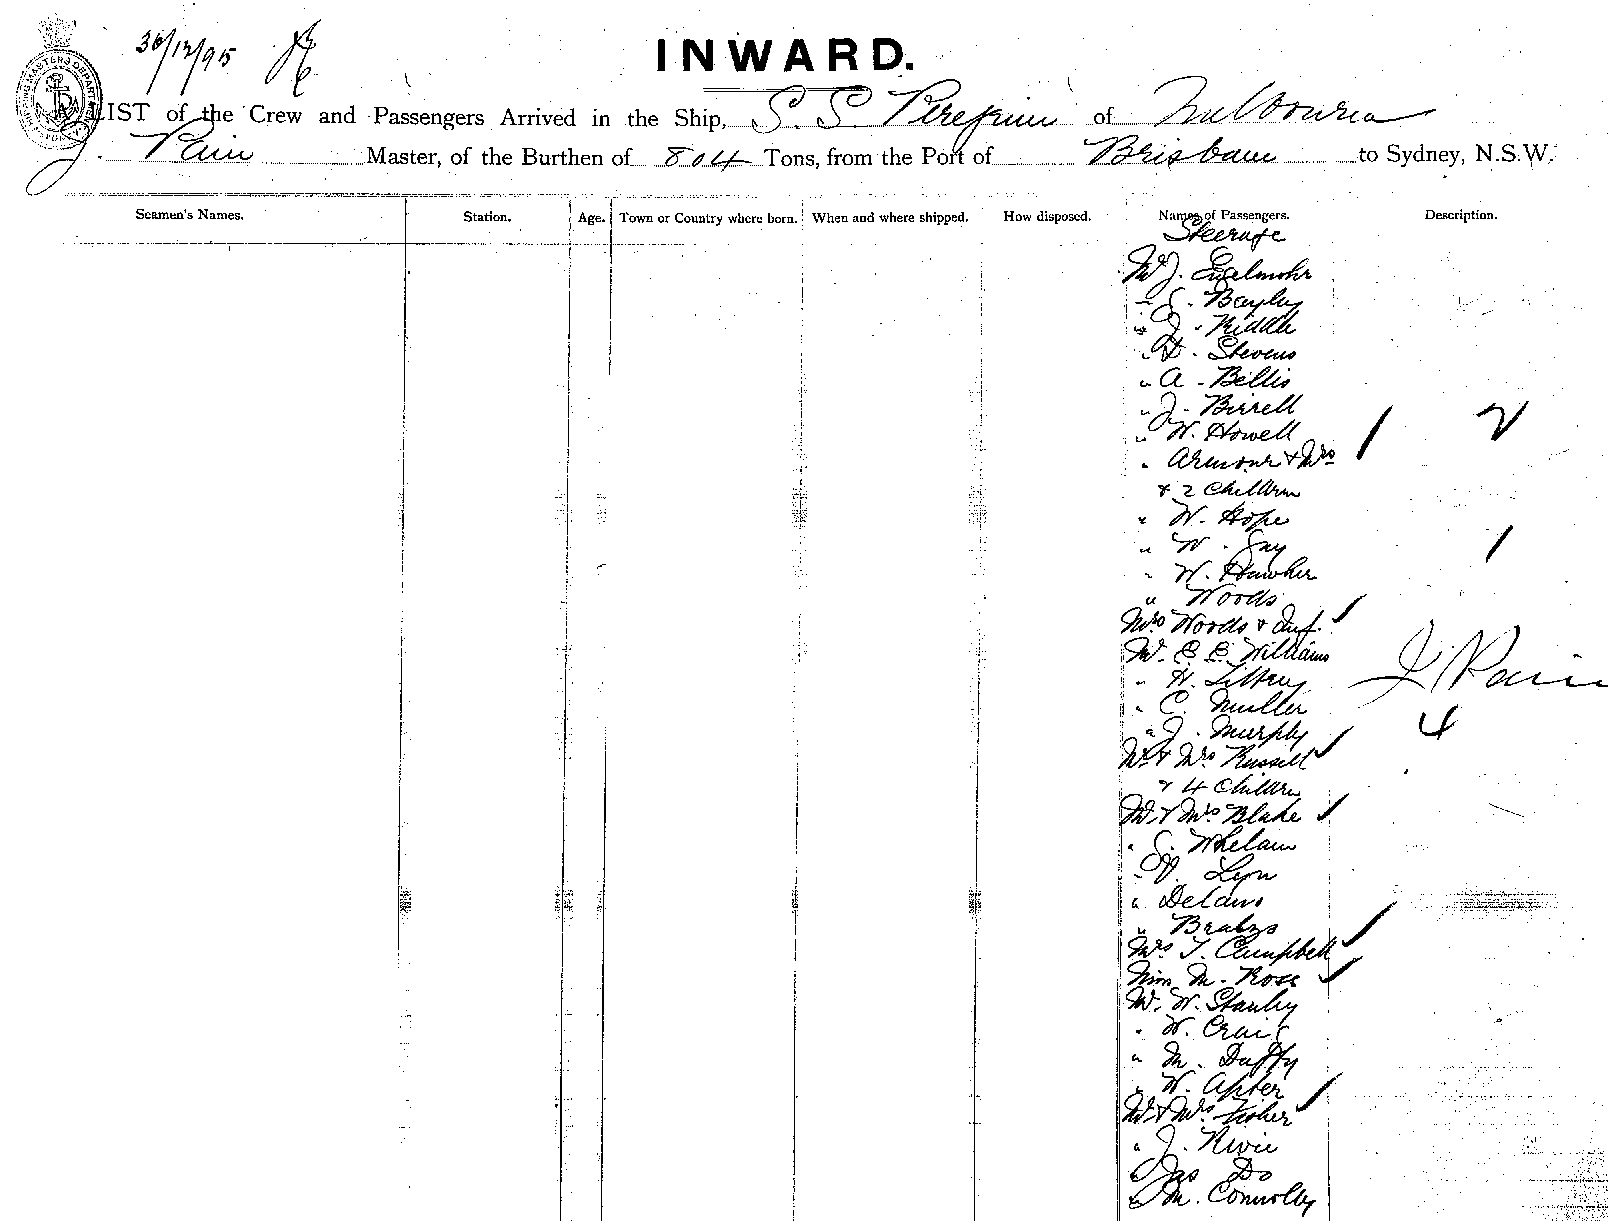 30/12/95
INWARD.
LIST of the Crew and Passengers Arrived in the Ship, S. S. Peregrine of Melbourne
J. Pain Master, of the Burthen of 804 Tons, from the Port of Brisbane to Sydney, N.S.W.
Seamen's Names. Station. Age. Town or Country where born. When and where shipped. How disposed. Names of Passengers. Description.
Steerage
Mr J. Engelmohr
" S. Bayley
" J. Riddle
" D. Stevens
" A. Bellis
" J. Birrell
" W. Howell
" Armour & Mrs 1 2
& 2 Children
" W. Hope
" W. Gay 1
" W. Hawker
" Woods
Mrs Woods & Inf.
Mr. E. E. Williams
" H. J Pain
" C. Muller
" J. Murphy 4
Mr & Mrs Russell
& 4 Children
Mr & Mrs Blake
" S. Whelan
" Lyn
" Delans
"
Mrs T. Campbell
Miss M. Ross
Mr. W. Stanley
" W. Craig
" M. Duffy
" W. Apter
Mr & Mrs Fisher
" J. Nivie
" Jas Do
" M. Connolly